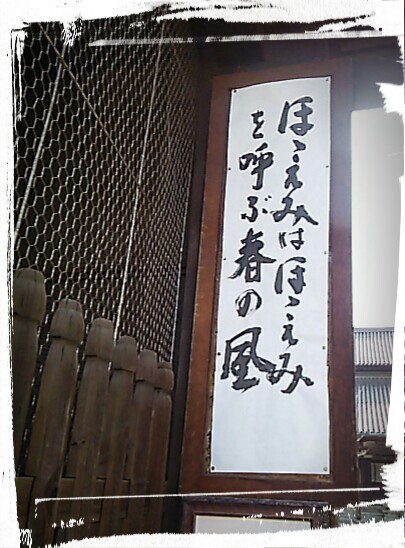 ほゝえみはほゝえみ
を呼ぶ春の風